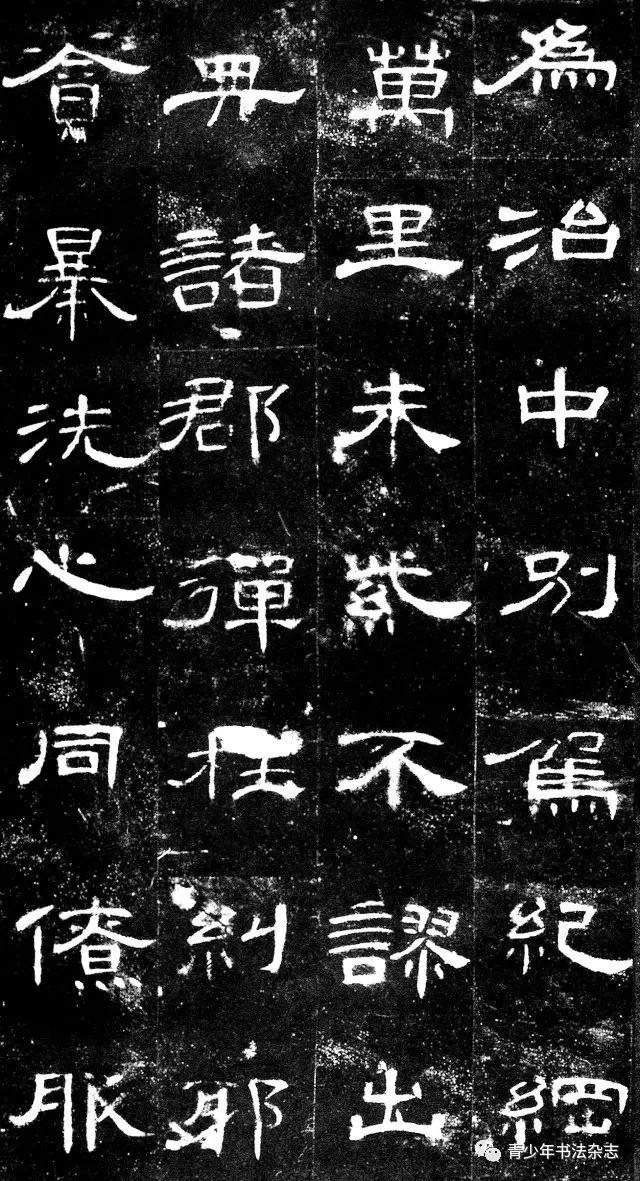 為治中別駕紀綱
萬里朱紫不謬出
典諸郡彈枉糾邪
貪暴洗心同僚服
青少年书法杂志